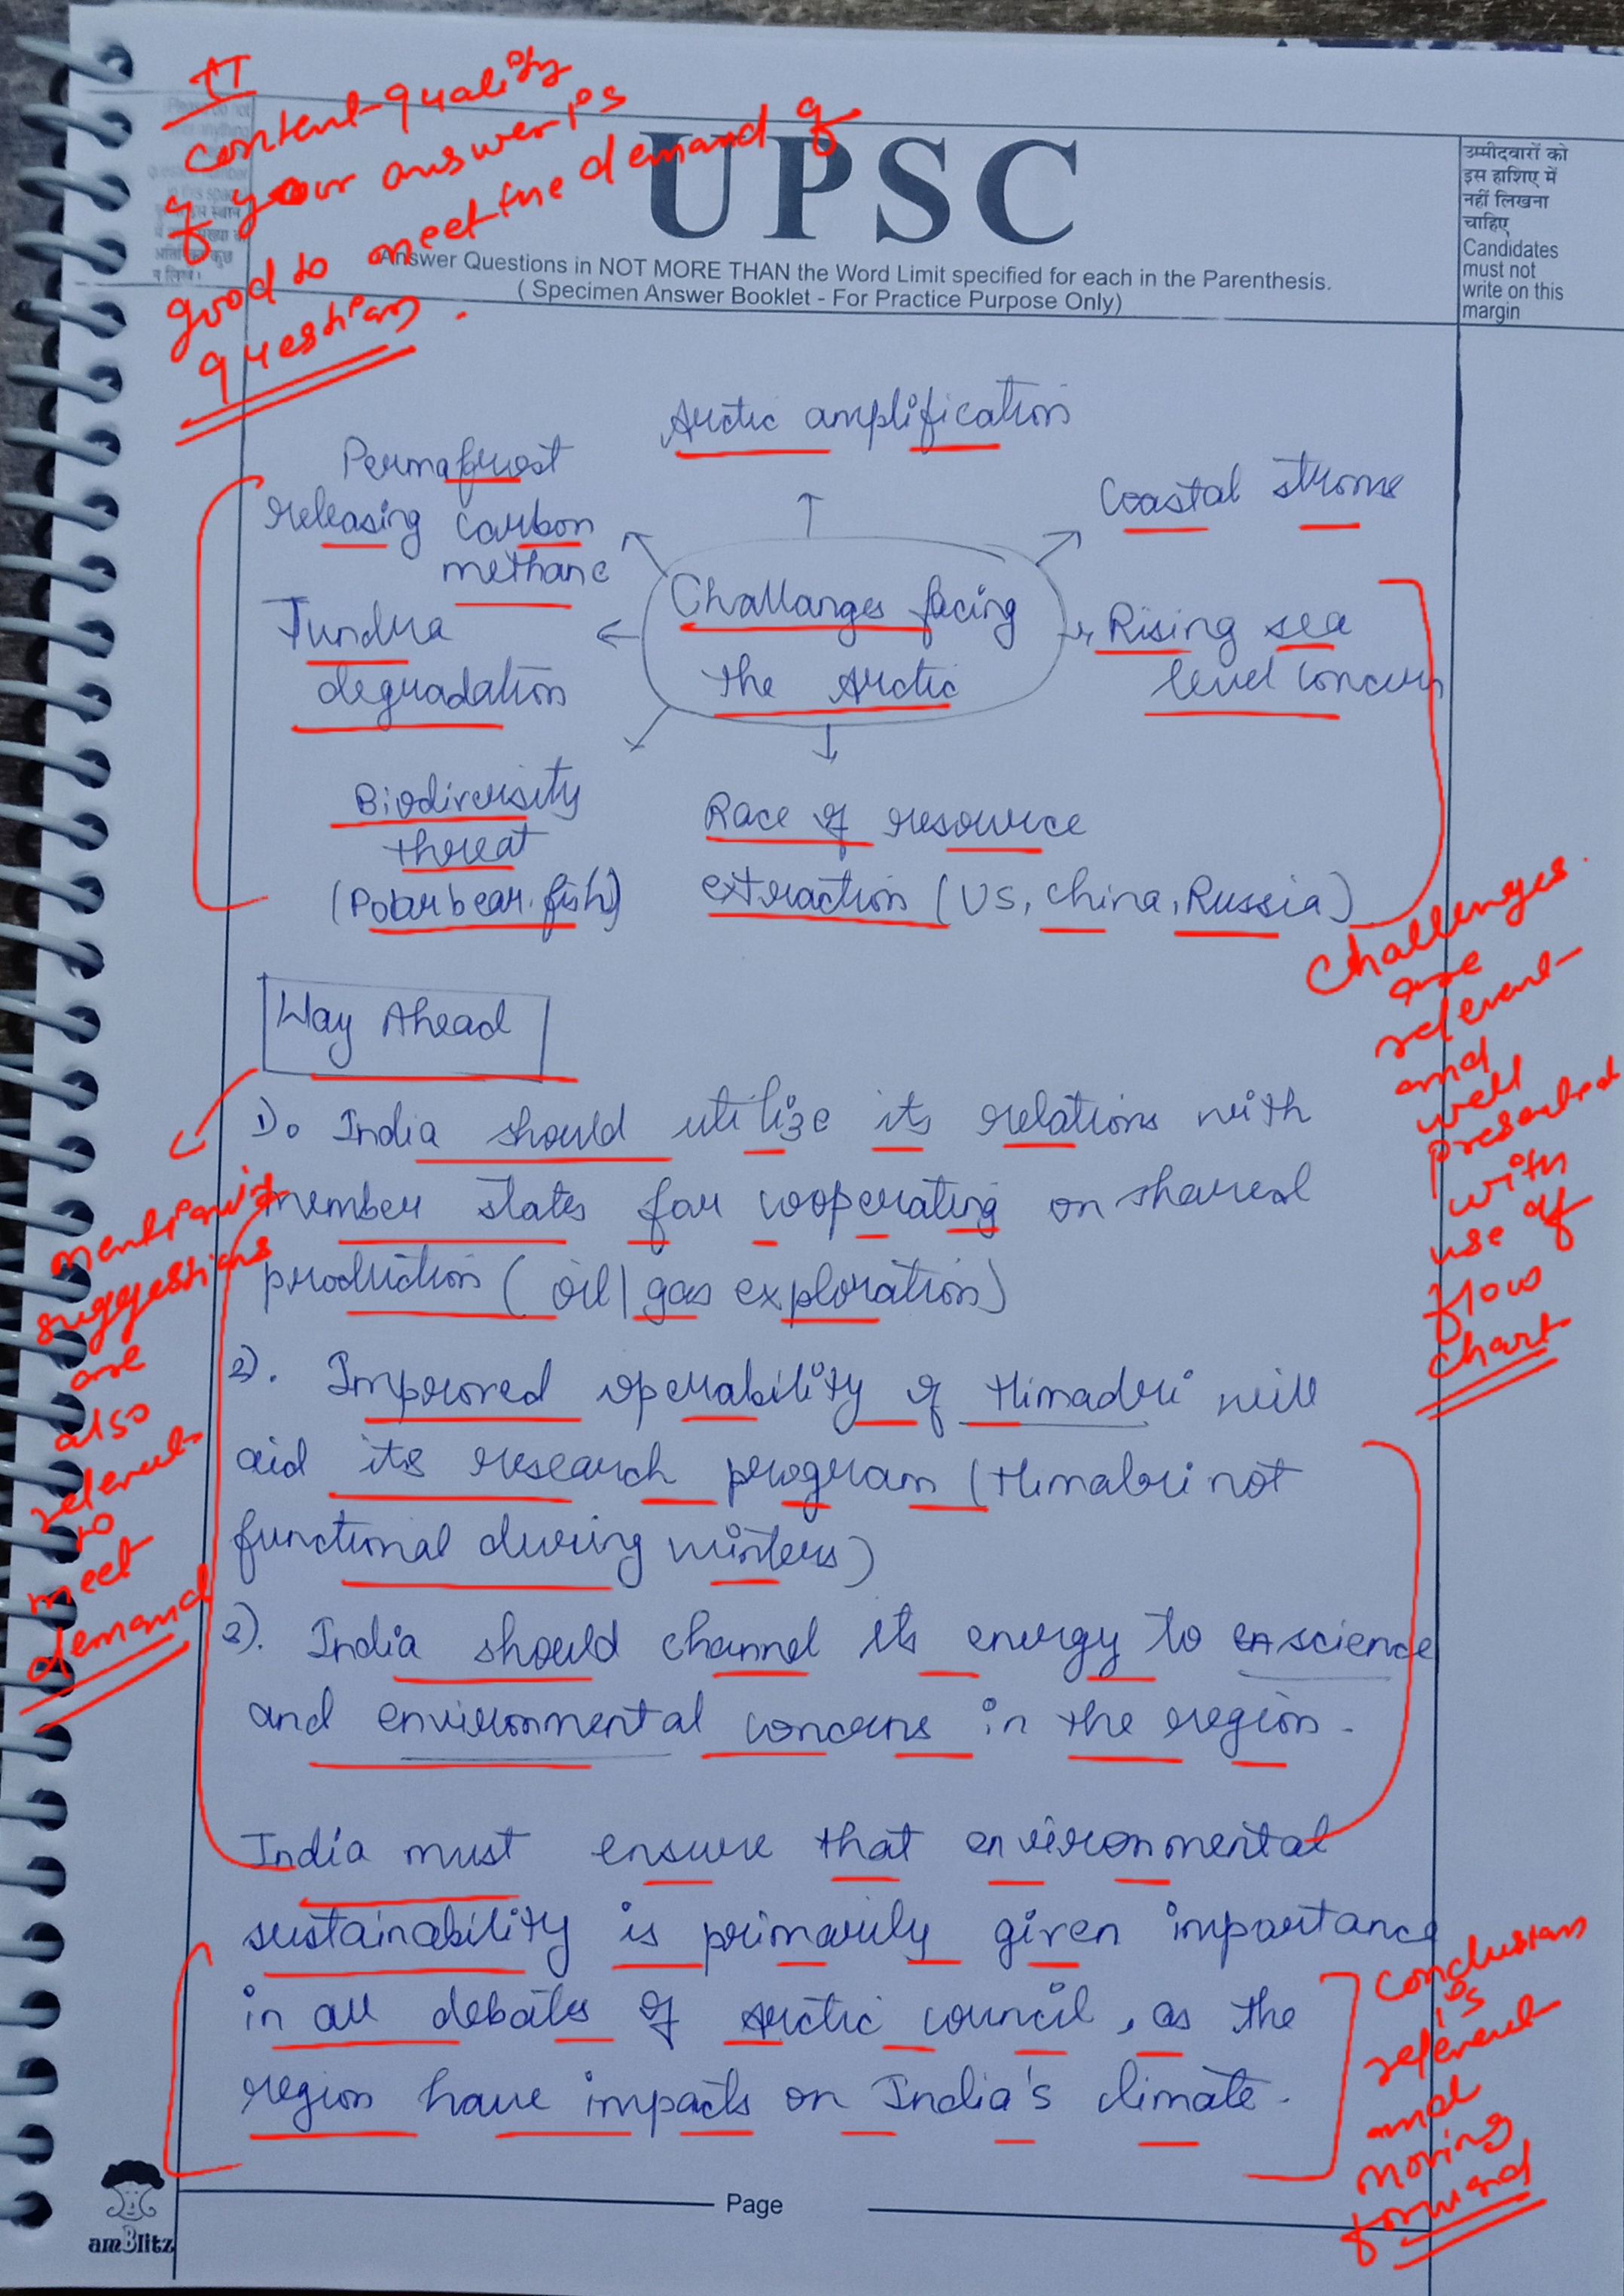 TT
content quality
of your answer is
good to meet the demand of
question.
UPSC
Answer Questions in NOT MORE THAN the Word Limit specified for each in the Parenthesis.
( Specimen Answer Booklet - For Practice Purpose Only)
उम्मीदवारों को
इस हाशिए में
नहीं लिखना
चाहिए
Candidates
must not
write on this
margin
Arctic amplification
Permafrost
releasing carbon
methane
Coastal stroms
Challanges facing
the Arctic
Tundra
degradation
Rising sea
level concern
Biodiversity
threat
(Polar bear, fish)
Race of resource
extraction (US, China, Russia)
Challenges
are
relevant
and
well
presented
with
use of
flow
chart
Way Ahead
1). India should utilize its relations with
member states for cooperating on shared
production (oil/gas exploration)
2). Improved operability of Himadri will
aid its research program (Himadri not
functional during winters)
3). India should channel its energy to science
and environmental concerns in the region.
suggestions
are
also
relevant
to
meet
demand
India must ensure that environmental
sustainability is primarily given importance
in all debates of Arctic council, as the
region have impacts on India's climate.
Conclusion
is
relevant
and
moving
forward
Page
amBlitz